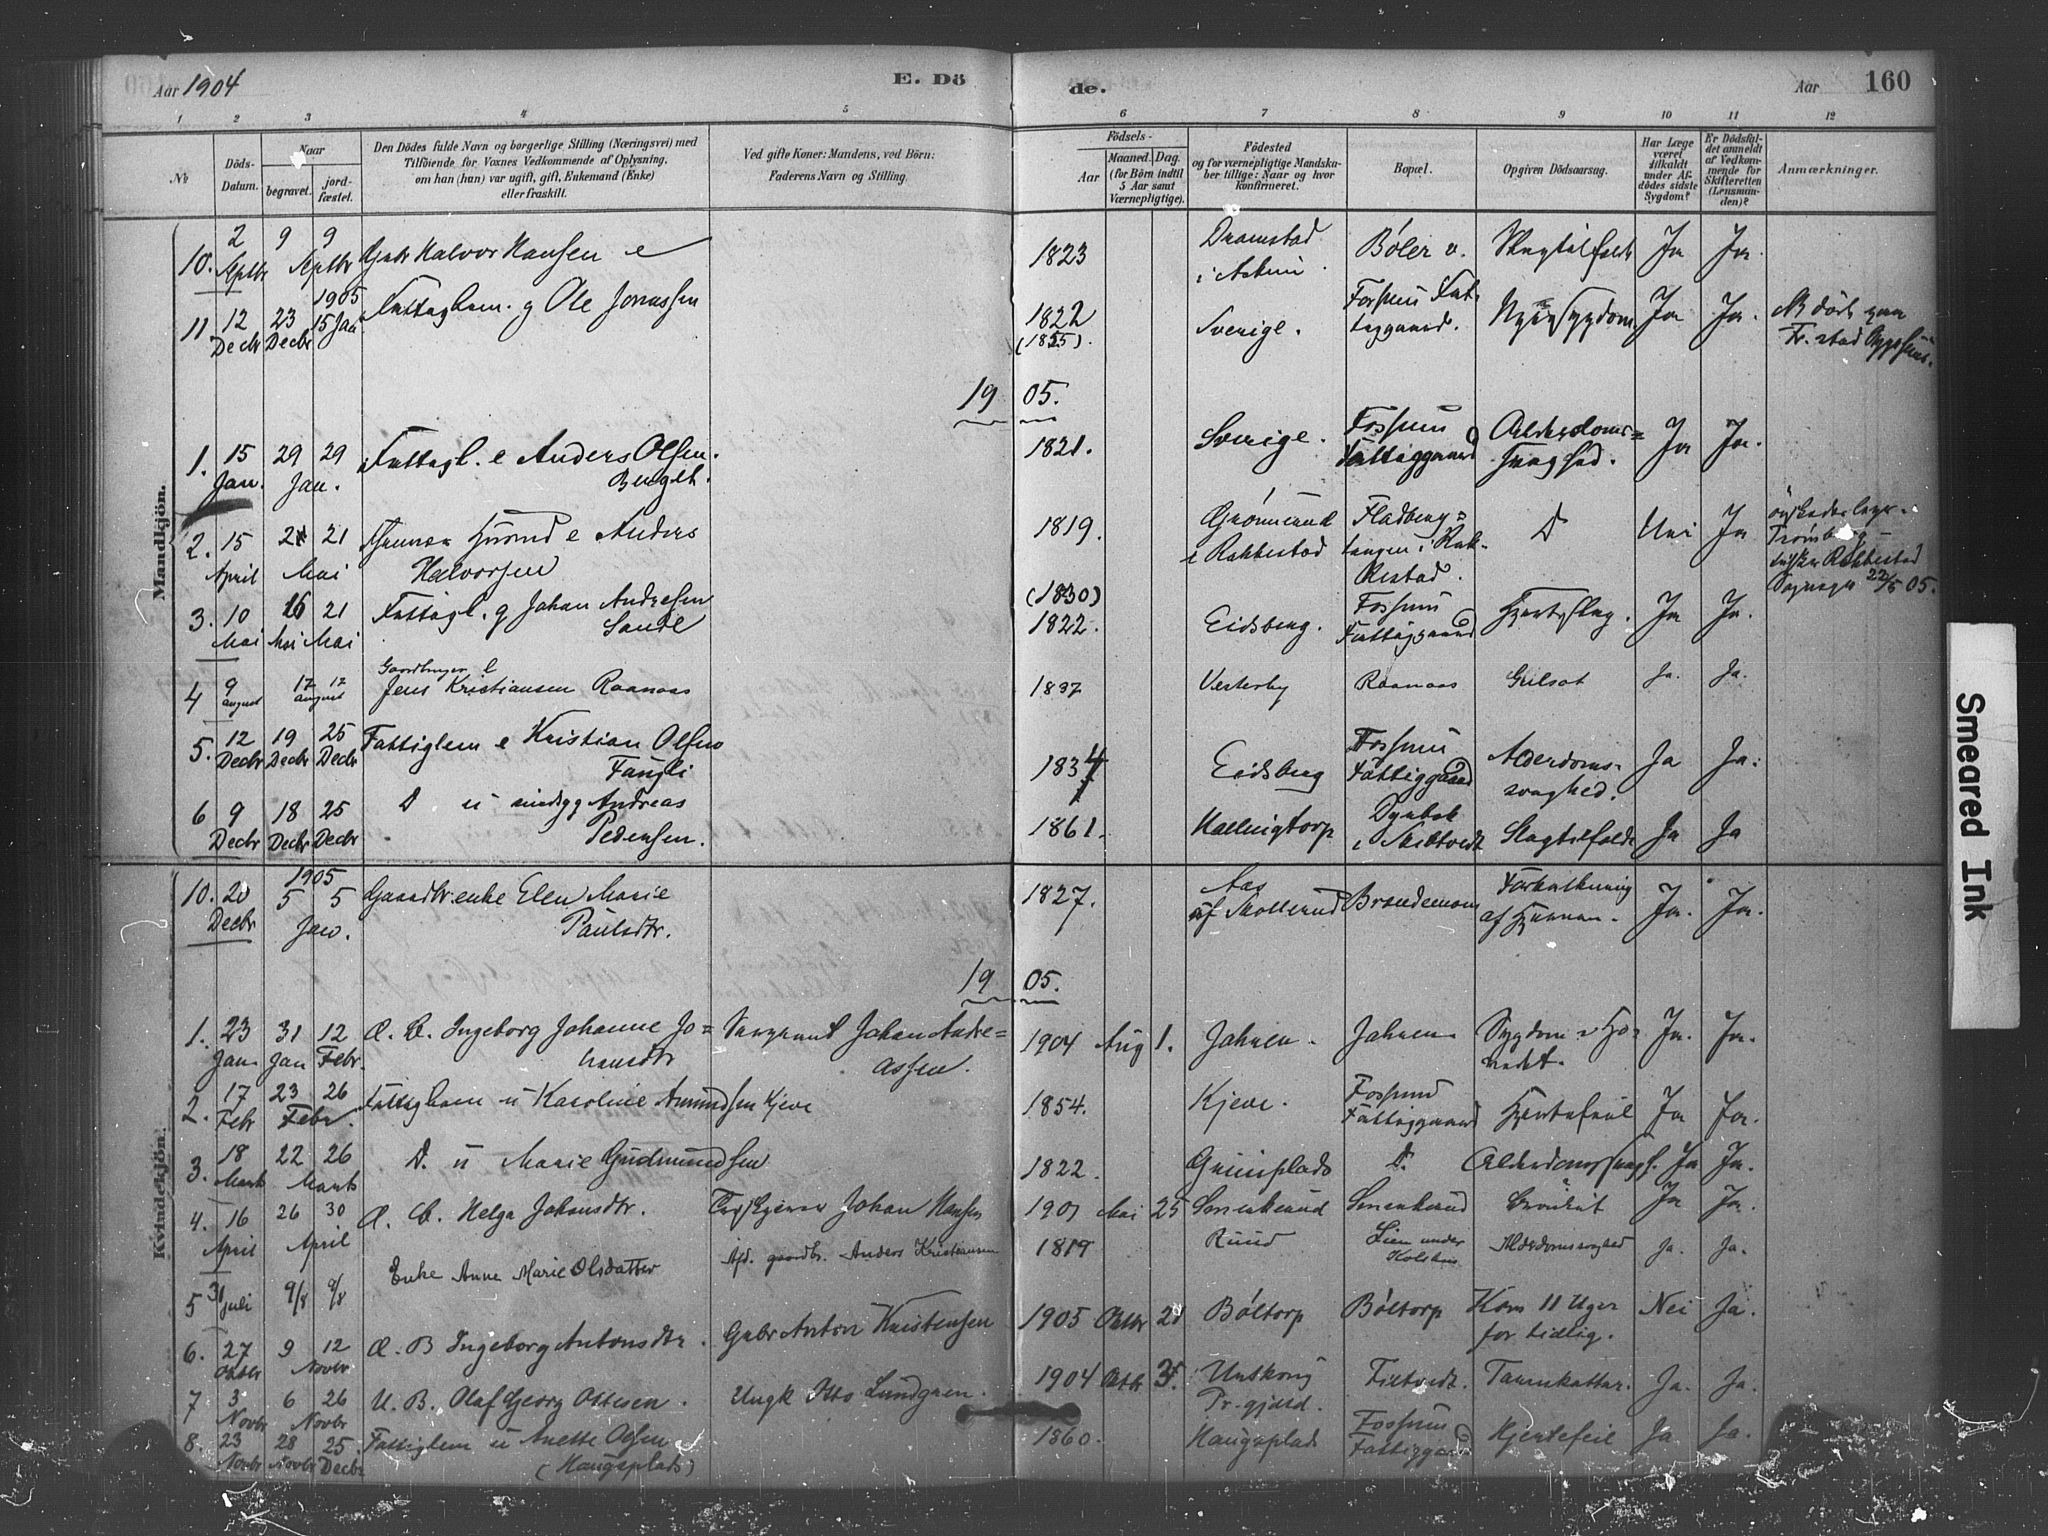 Aar 1904
E. Dö
de.
Aar
160
1 2 3 4 5 6 7 8 9 10 11 12
№
Döds-
Datum.
Naar
begravet.
jord-
fæstet.
Den Dödes fulde Navn og borgerlige Stilling (Næringsvei) med
Tilföiende for Voxnes Vedkommende af Oplysning,
om han (hun) var ugift, gift, Enkemand (Enke)
eller fraskilt.
Ved gifte Koner: Mandens, ved Börn:
Faderens Navn og Stilling.
Födsels-
Aar
Maaned. Dag.
(for Börn indtil
5 Aar samt
Værnepligtige).
Födested
og for værnepligtige Mandska-
ber tillige: Naar og hvor
konfirmeret.
Bopæl.
Opgiven Dödsaarsag.
Har Læge
været
tilkaldt
under Af-
dødes sidste
Sygdom?
Er Dödsfal-
det anmeldt
af Vedkom-
mende for
Skifteretten
(Lensman-
den)?
Anmærkninger.
Mandkjön.
10. 2 Septbr 9 9 Septbr Halvor Hansen e 1823 Dramstad i Askim Böler Slagtilfælde Ja Ja
11. 12 Decbr 23 Decbr 1905 15 Jan Fattiglem. g Ole Jonassen 1822 (1825). Sverige. Fossum Fattiggaard. Nyresygdom Ja Ja. død paa Fr. stad Sygehus.
1905.
1. 15 Jan. 29 29 Jan. Fattigl. e Anders Olsen. 1821. Sverige. Fossum Fattiggaard Alderdoms= svaghed. Ja Ja.
2. 15 April 21 21 Mai e Anders Halvorsen 1819. Grønnerud i Rakkestad i Rakkestad. D Nei Ja Rakkestad 22/5 05.
3. 10 Mai 16 Mai 21 Mai Fattigl. g Johan Andresen (1830) 1822. Eidsberg. Fossum Fattiggaard Hjerteslag. Ja Ja.
4 9 august 17 17 august Gaardbruger e Jens Kristiansen Raanaas 1837 Vesterby Raanaas Gulsot Ja. Ja.
5. 12 Decbr 19 Decbr 25 Decbr Fattiglem e Kristian Olsen 1834 Eidsberg Fossum Fattiggaard Alderdoms- svaghed. Ja Ja.
6 9 Decbr 18 Decbr 25 Decbr D u sindssyg Andreas Pedersen. 1861. Hallingtorp i Skiptvedt Slagtilfælde Ja Ja
Kvindekjön.
10. 20 Decbr 1905 5 5 Jan. Gaardbr. enke Elen Marie Paulsdtr. 1827. Aas af Mollerud Brandemoen Forkalkning af Hjernen. Ja. Ja.
1905.
1. 23 Jan 31 Jan 12 Febr. Æ. B. Ingeborg Johanne Jo= hansdtr Sergeant Johan Andre= assen. 1904 Aug 1. Jahren. Jahren Sygdom i Ho- vedet. Ja. Ja.
2. 17 Febr 23 26 Febr. Fattiglem u Karoline Amundsen Kjeve 1854. Kjeve. Fossum Fattiggaard Hjertefeil Ja Ja.
3. 18 Marts 22 26 Marts D. u Marie Gudmundsen 1822. Griisplads D. Alderdomssvagh. Ja Ja.
4. 16 April 26 30 April Æ. B. Helga Johansdtr. Johan Hansen 1901 Mai 25 Sonerud Sonerud Bronkit Ja Ja.
5 31 juli 9/8 9/8 Enke Anne Marie Olsdatter Afd. gaardbr. Anders Kristiansen 1819 Ruud Lien under Kolstad Alderdomssvaghed Ja. Ja.
6. 27 Oktbr 9 12 Novbr Æ. B Ingeborg Antonsdtr. Gabr Anton Kristensen 1905 Oktbr 20 Böltorp Böltorp Kom 11 Uger for tidlig. Nei Ja.
7 3 Novbr 6 26 Novbr U. B. Olaf Georg Ottesen. Ungk Otto Lundgren. 1904 Oktbr 3. Fr. gjæld. Tarmkattar. Ja. Ja.
8. 23 Novbr 28 Novbr 25 Decbr Fattiglem u Anette Olsen (Haugsplads) 1860. Haugsplads Fossum Fattiggaard Hjertefeil Ja Ja.
Smeared Ink